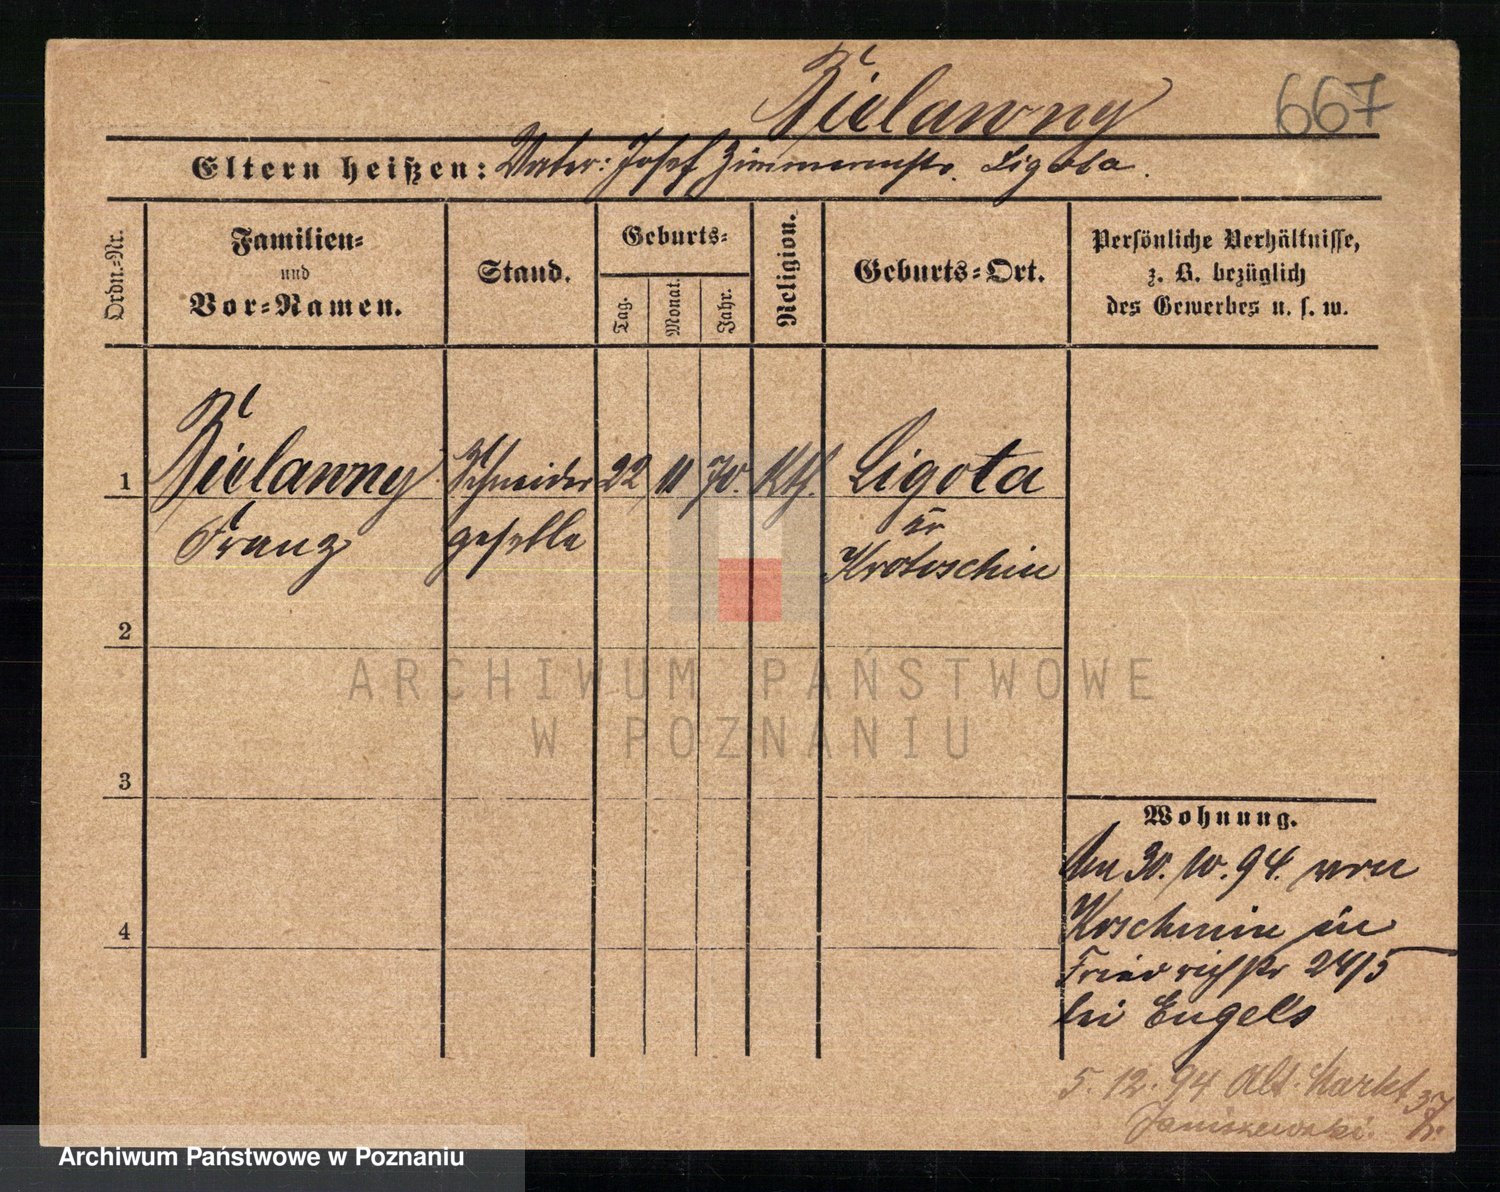 Bielawny 667
Eltern heißen: Vater: Josef Zimmermstr. Ligota.
Ordn.-Nr.
Familien-
und
Vor-Namen.
Stand.
Geburts-
Tag.
Monat.
Jahr.
Religion.
Geburts-Ort.
Persönliche Verhältnisse,
z. B. bezüglich
des Gewerbes u. s. w.
1 Bielawny Schneider 22 11 70. Kth. Ligota
Franz geselle Kr
Krotoschin
2
3
4
Wohnung.
Am 30. 10. 94. von
Koschmin in
Friedrichstr 24/5
bei Engels
5. 12. 94 Alt. Markt 37
Janiszewski.
ARCHIWUM PAŃSTWOWE
W POZNANIU
Archiwum Państwowe w Poznaniu